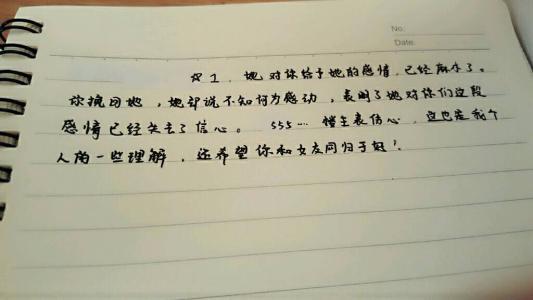 No.
Date.
☆1、她对你给予她的感情，已经麻木了。
你挽回她，她却说不知何为感动，表明了她对你们这段
感情已经失去了信心。555…楼主表伤心，这也是我个
人的一些理解，还希望你和女友同归于好！